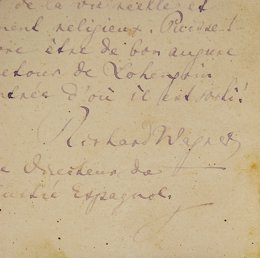 de la vie réelle et
religieux. Puisse-t-
être de bon augure
retour de Lohengrin
d'où il est sorti!
Richard Wagner
directeur de
Espagnol.